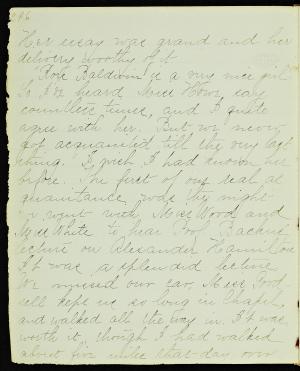 Her essay was grand and her
delivery worthy of it.
"Rose Baldwin is a very nice girl"
So I've heard Miss Howe say
countless times, and I quite
agree with her. But we never
got acquainted till the very last
thing. I wish I had known her
before. The first of our real ac
quaintance was the night
we went with Miss Wood and
Miss White to hear Prof.
lecture on Alexander Hamilton
It was a splendid lecture
We missed our car, Miss
kept us so long in Chapel,
and walked all the way in. It was
worth it, though I had walked
about five miles that day over